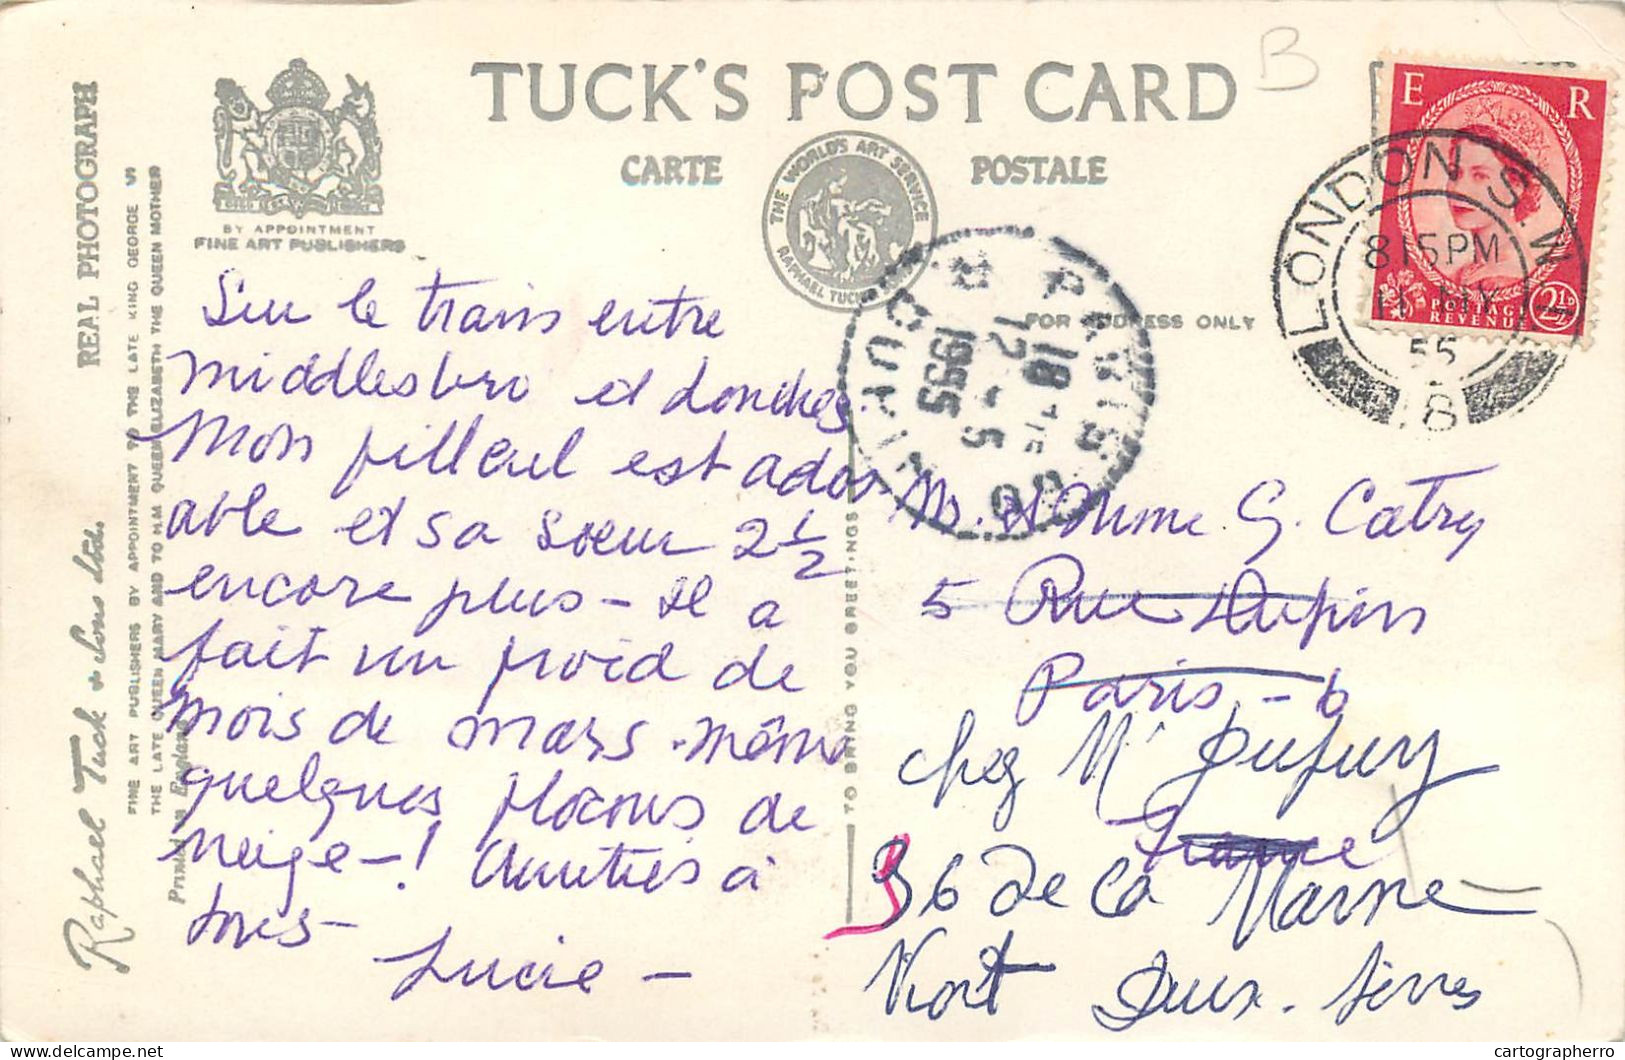 TUCK'S POST CARD
CARTE POSTALE
BY APPOINTMENT
FINE ART PUBLISHERS
THE WORLD'S ART SERVICE
RAPHAEL TUCK
FOR ADDRESS ONLY
B
E R
POSTAGE
REVENUE
2½D
LONDON S.W.
815PM
11 MY
55
18
PARIS
18
12 - 5
1955
REAL PHOTOGRAPH
Raphael Tuck & Sons Ltd.
FINE ART PUBLISHERS BY APPOINTMENT TO THE LATE KING GEORGE VI
THE LATE QUEEN MARY AND TO H.M QUEEN ELIZABETH THE QUEEN MOTHER
Printed in England
TO BRING YOU GREETINGS
Sur le train entre
Middlesbro et Londres.
Mon filleul est ador
able et sa soeur 2 1/2
encore plus - Il a
fait un froid de
mois de mars. même
quelques flocons de
neige -! Amitiés à
tous -
Lucie -
Mr. et Mme G. Catry
5 Rue Dupin
Paris - 6
France
chez Mr Dupuy
36 de la Marne
Niort Deux-Sèvres
cartographerro